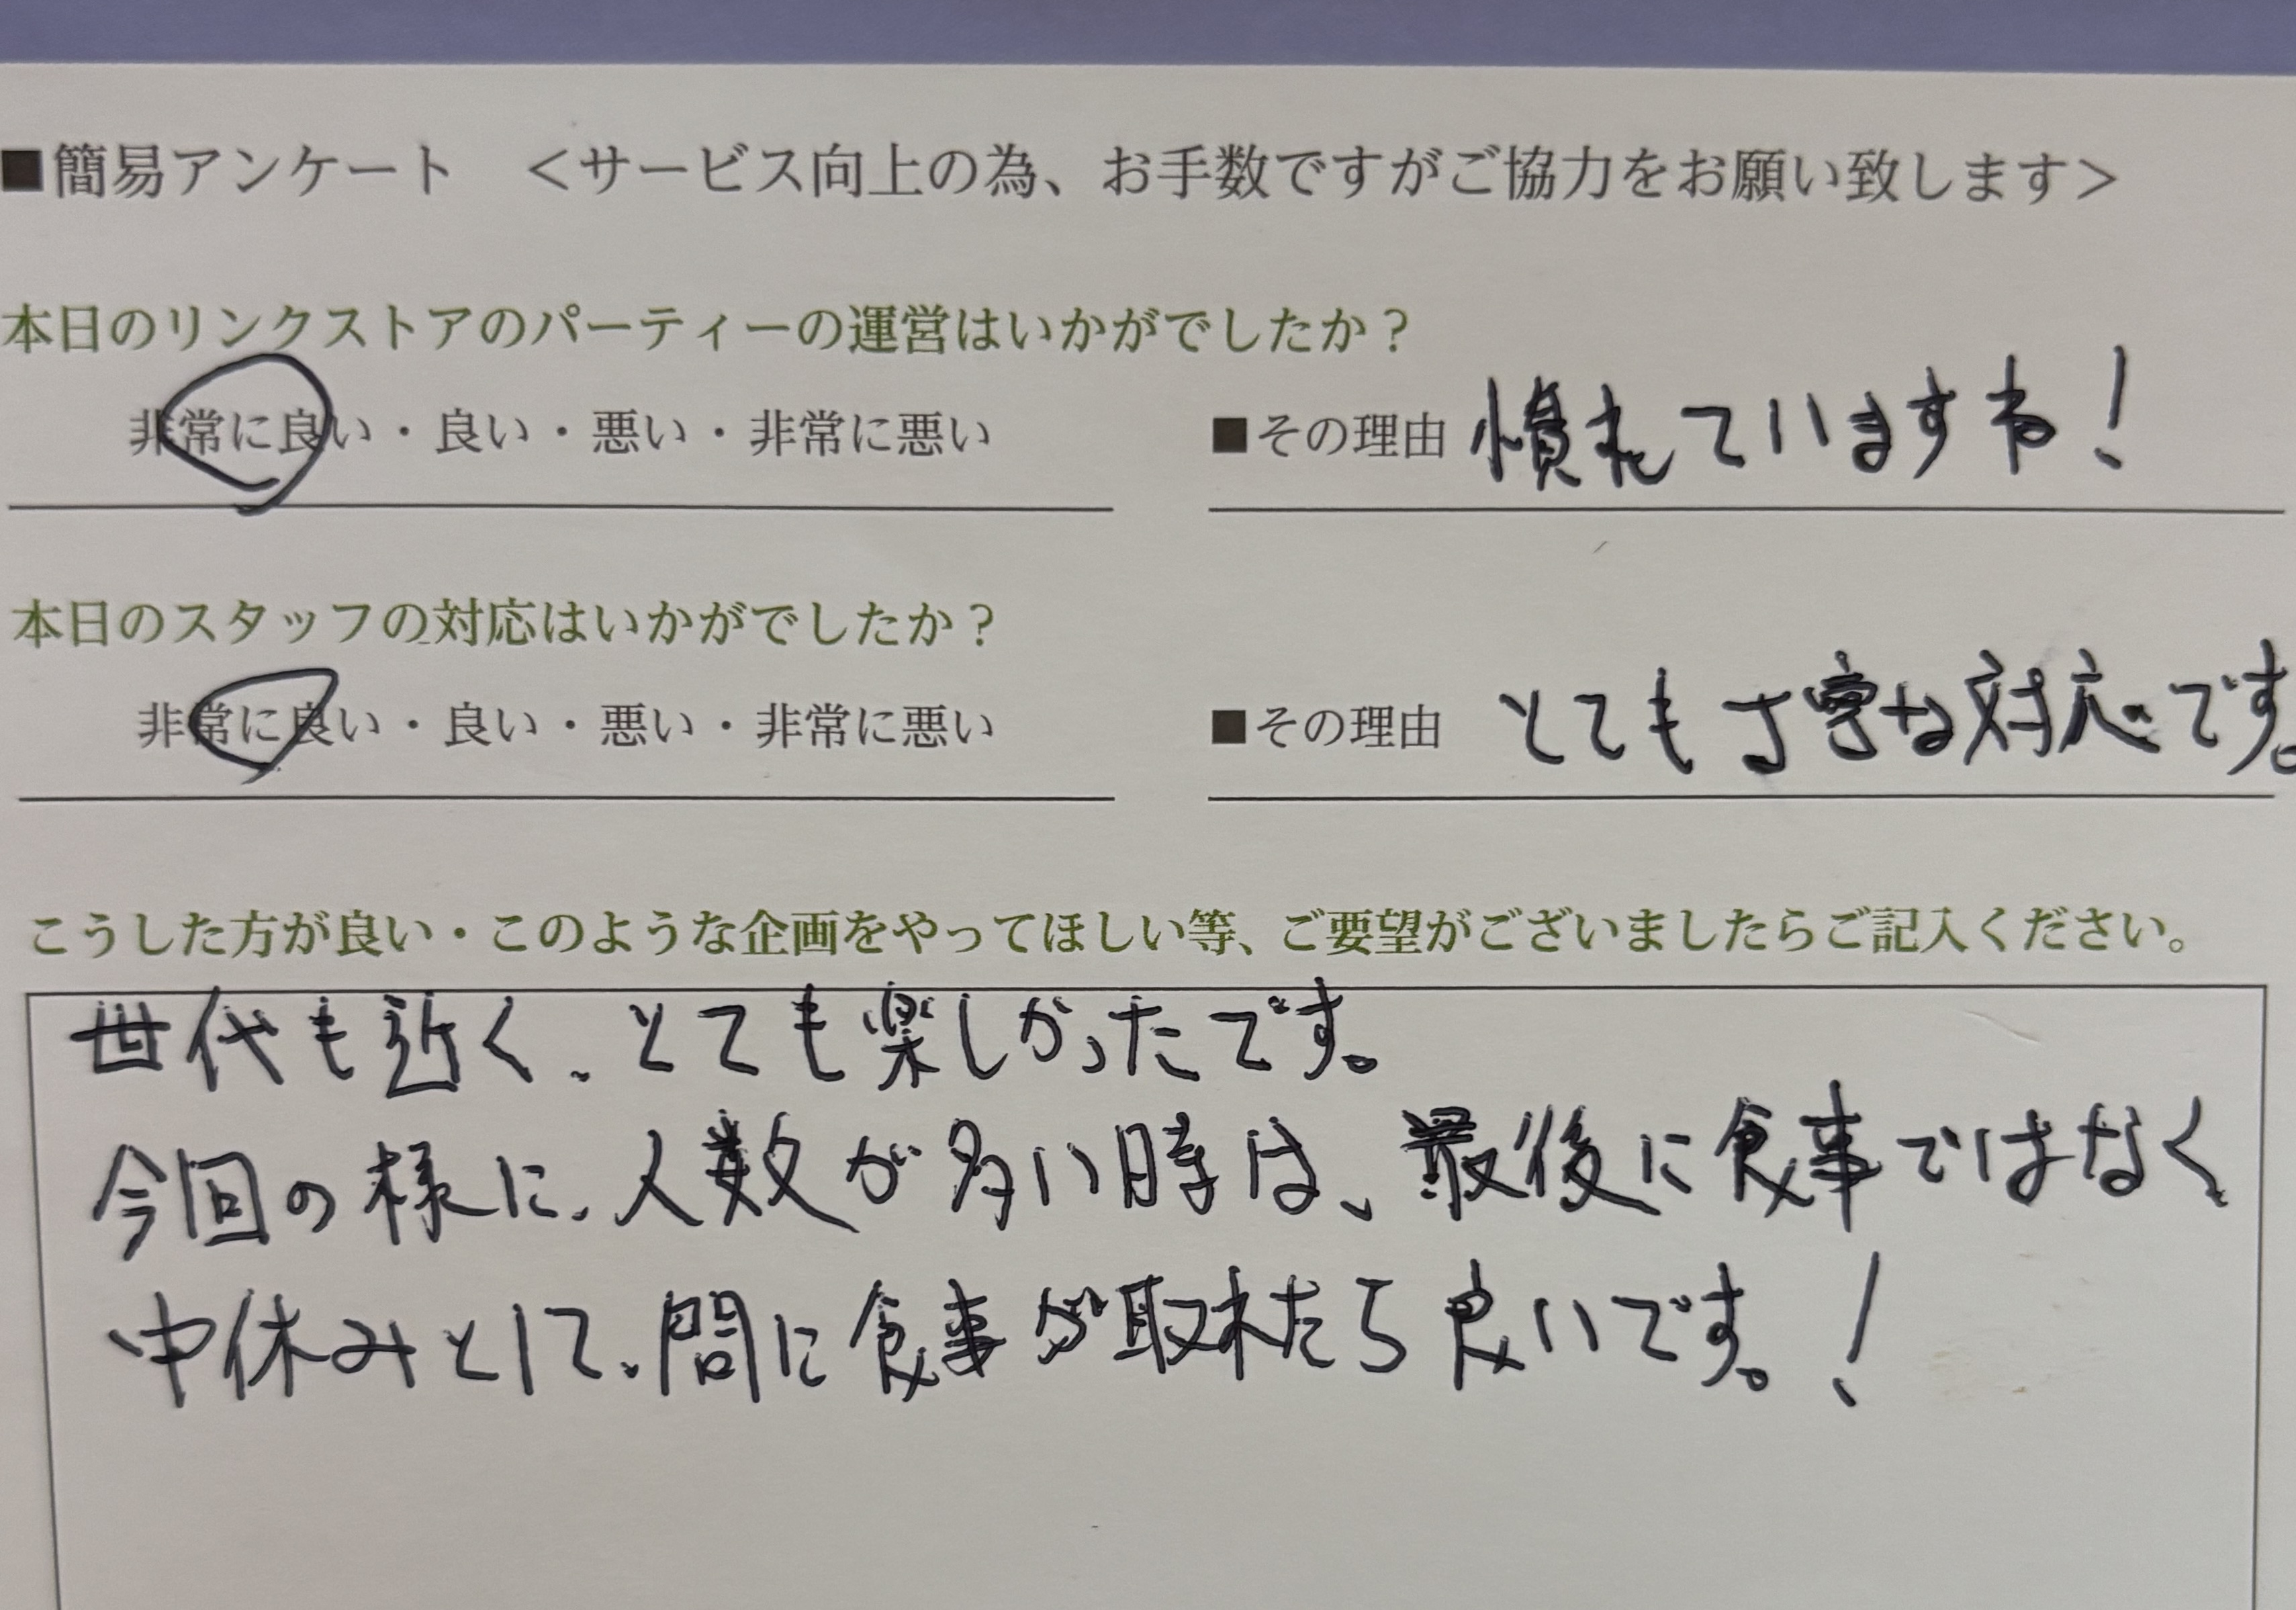 ■簡易アンケート　＜サービス向上の為、お手数ですがご協力をお願い致します＞
本日のリンクストアのパーティーの運営はいかがでしたか？
非常に良い・良い・悪い・非常に悪い　■その理由 慣れていますね！
本日のスタッフの対応はいかがでしたか？
非常に良い・良い・悪い・非常に悪い　■その理由 とても丁寧な対応です。
こうした方が良い・このような企画をやってほしい等、ご要望がございましたらご記入ください。
世代も近く、とても楽しかったです。
今回の様に、人数が多い時は、最後に食事ではなく
中休みとして、間に食事が取れたら良いです。！